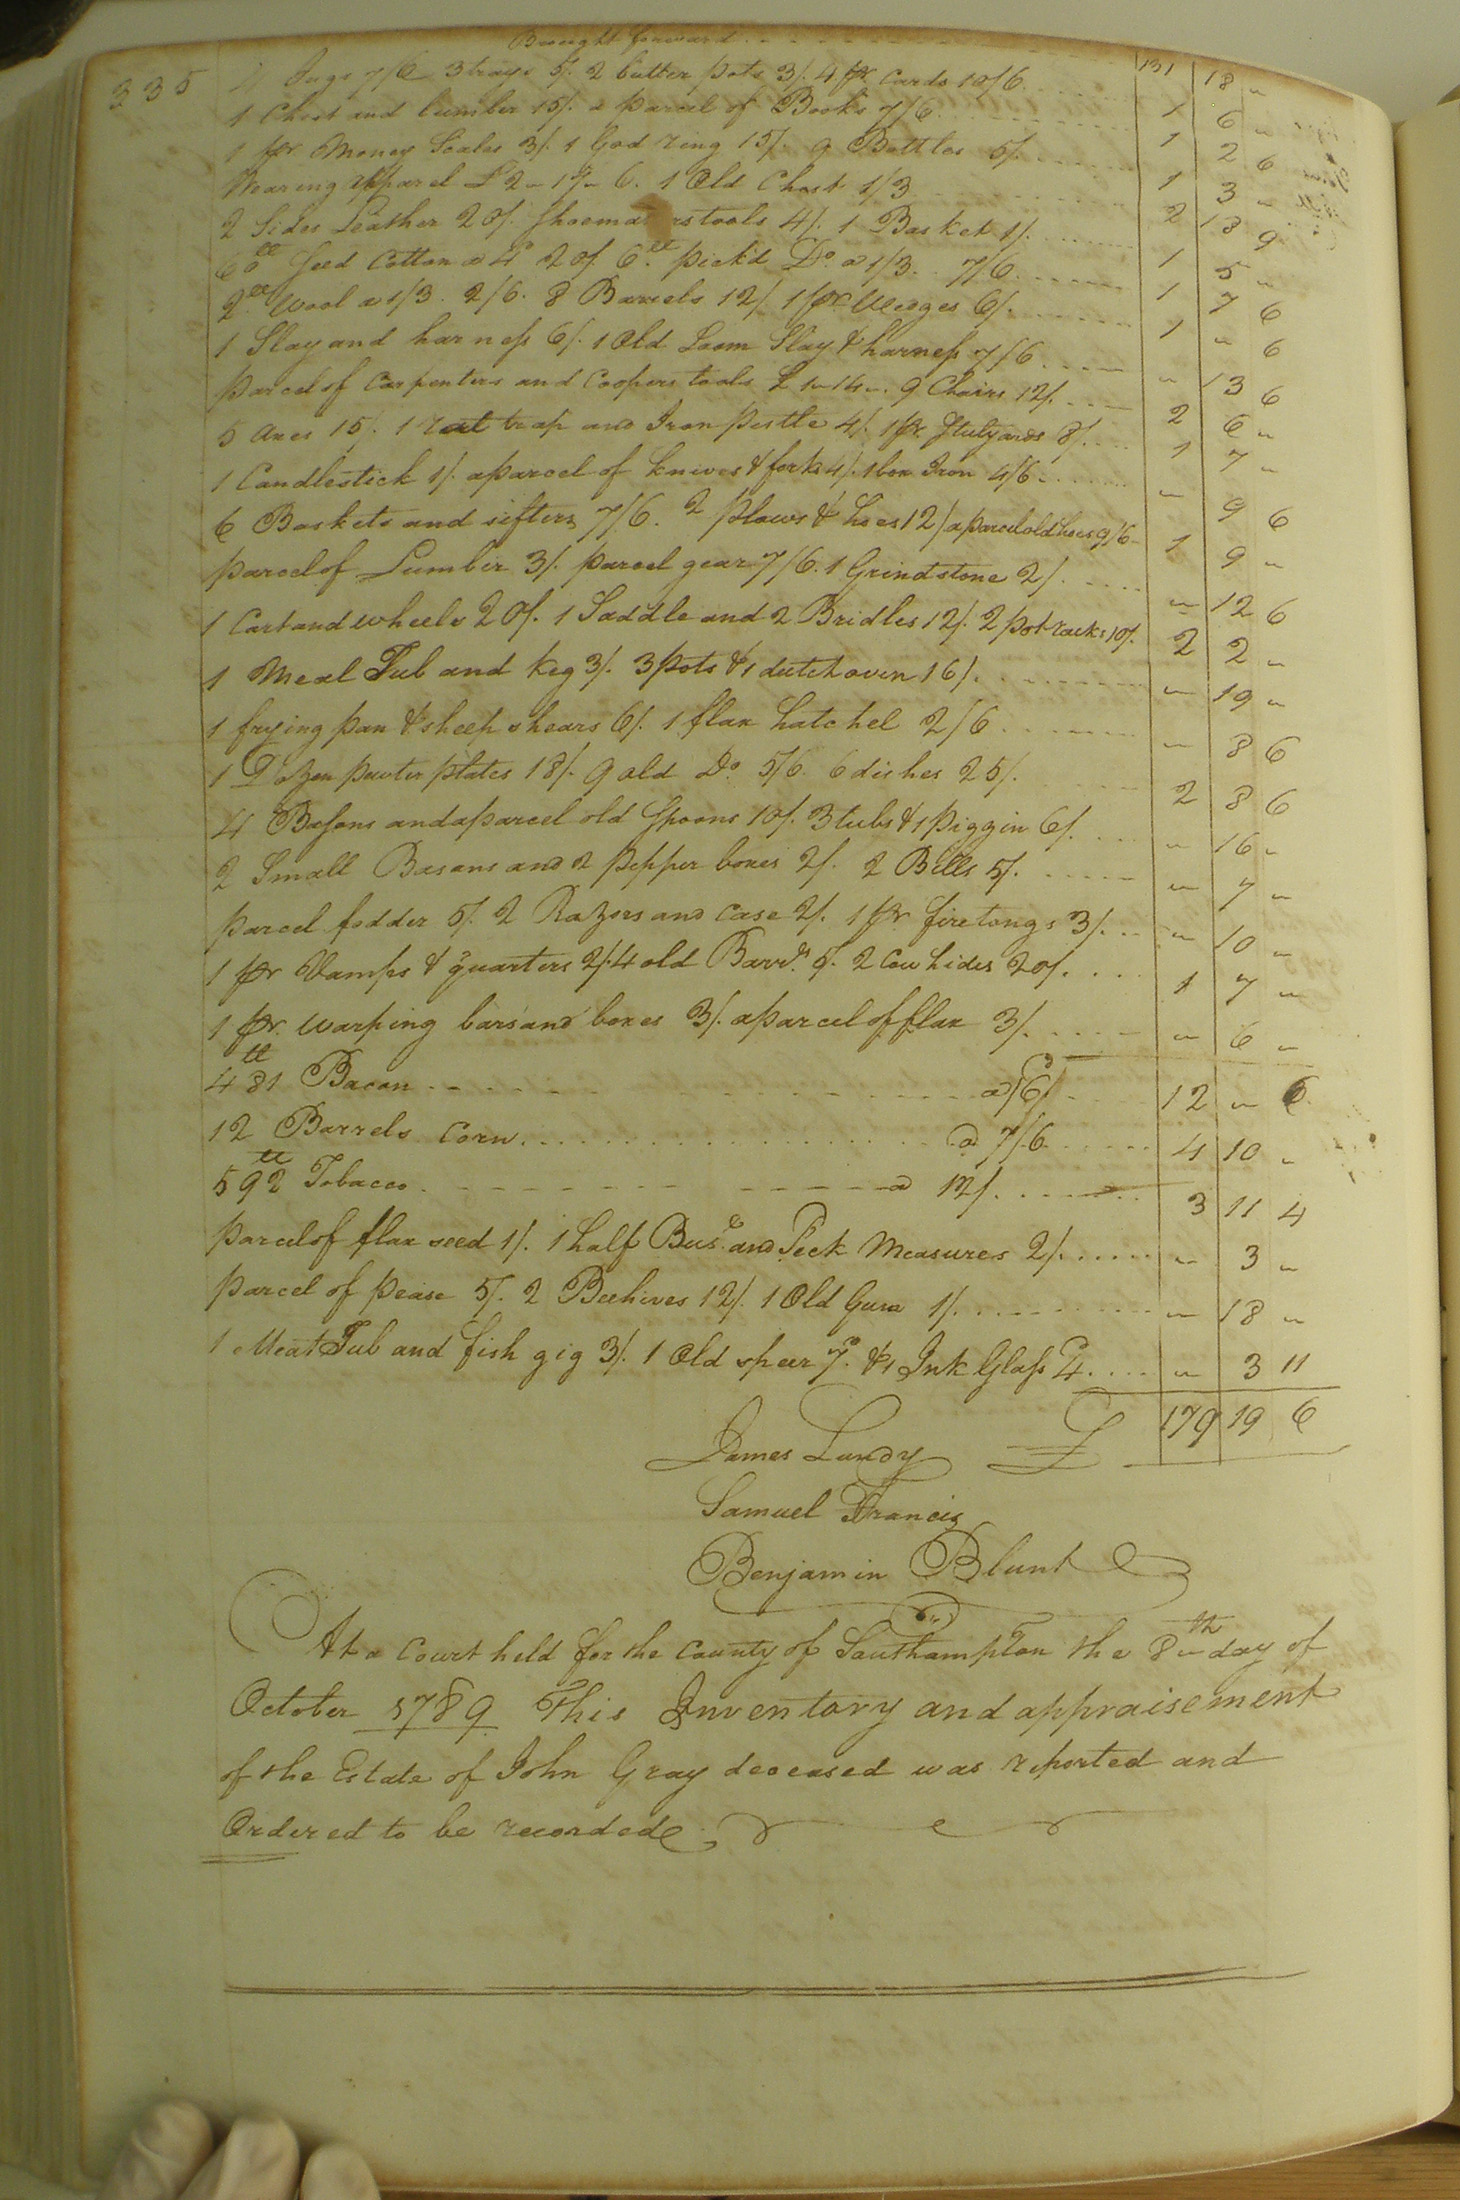 335
Brought forward 131 18 "
4 Jugs 7/6 3 trays 5/. 2 butter pots 3/. 4 pr. Cards 10/6 1 6 "
1 Chest and lumber 15/. a parcel of Books 7/6. 1 2 6
1 pr. Money Scales 3/. 1 God ring 15/. 9 Bottles 5/. 1 3 "
Wearing apparel £2 " 17 " 6. 1 Old Chest 1/3 2 18 9
2 Sides Leather 20/. Shoema rs tools 4/. 1 Basket 1/. 1 5 "
60 lb Seed Cotton a 4d 20/. 6 lb pick'd Do. a 1/3. 7/6 1 7 6
2 lb Wool a 1/3. 2/6. 8 Barrels 12/. 1 pr. Wedges 6/. 1 " 6
1 Slay and harness 6/. 1 Old Loom Slay & harness 7/6 " 13 6
Parcel of Carpenters and Coopers tools £1 " 14 ". 9 Chairs 12/. 2 6 "
5 Axes 15/. 1 rat trap and Iron pestle 4/. 1 pr. Stulyards 8/. 1 7 "
1 Candlestick 1/. a parcel of knives & forks 4/. 1 box Iron 4/6 " 9 6
6 Baskets and sifters 7/6. 2 plows & hoes 12/ a parcel old hoes 9/6 1 9 "
Parcel of Lumber 3/. parcel gear 7/6. 1 Grindstone 2/. " 12 6
1 Cart and wheels 20/. 1 Saddle and 2 Bridles 12/. 2 pot racks 10/. 2 2 "
1 Meal Tub and keg 3/. 3 pots & 1 dutch oven 16/. " 19 "
1 frying pan & sheep shears 6/. 1 flax hatchel 2/6 " 8 6
1 Dozen pewter plates 18/. 9 old Do. 5/6. 6 dishes 25/. 2 8 6
4 Basons and a parcel old Spoons 10/. 3 tubs & 1 piggin 6/. " 16 "
2 Small Basans and 2 pepper boxes 2/. 2 Bells 5/. " 7 "
Parcel fodder 5/. 2 Razors and Case 2/. 1 pr fire tongs 3/. " 10 "
1 pr Vamps & quarters 2/. 4 old Barrls. 5/. 2 Cow hides 20/. 1 7 "
1 pr. warping bars and boxes 3/. a parcel of flax 3/. " 6 "
481 lb Bacon a /6d 12 " 6
12 Barrels Corn a 7/6 4 10 "
592 lb Tobacco a 12/. 3 11 4
Parcel of flax seed 1/. 1 half Bus.l and Peck Measures 2/. " 3 "
Parcel of pease 5/. 2 Beehives 12/. 1 Old Gun 1/. " 18 "
1 Meat Tub and fish gig 3/. 1 Old spear 7d. & 1 Ink Glass 4d " 3 11
£ 179 19 6
James Lundy
Samuel Francis
Benjamin Blunt
At a Court held for the County of Southampton the 8th day of
October 1789 This Inventory and appraisement
of the Estate of John Gray deceased was reported and
Ordered to be recorded